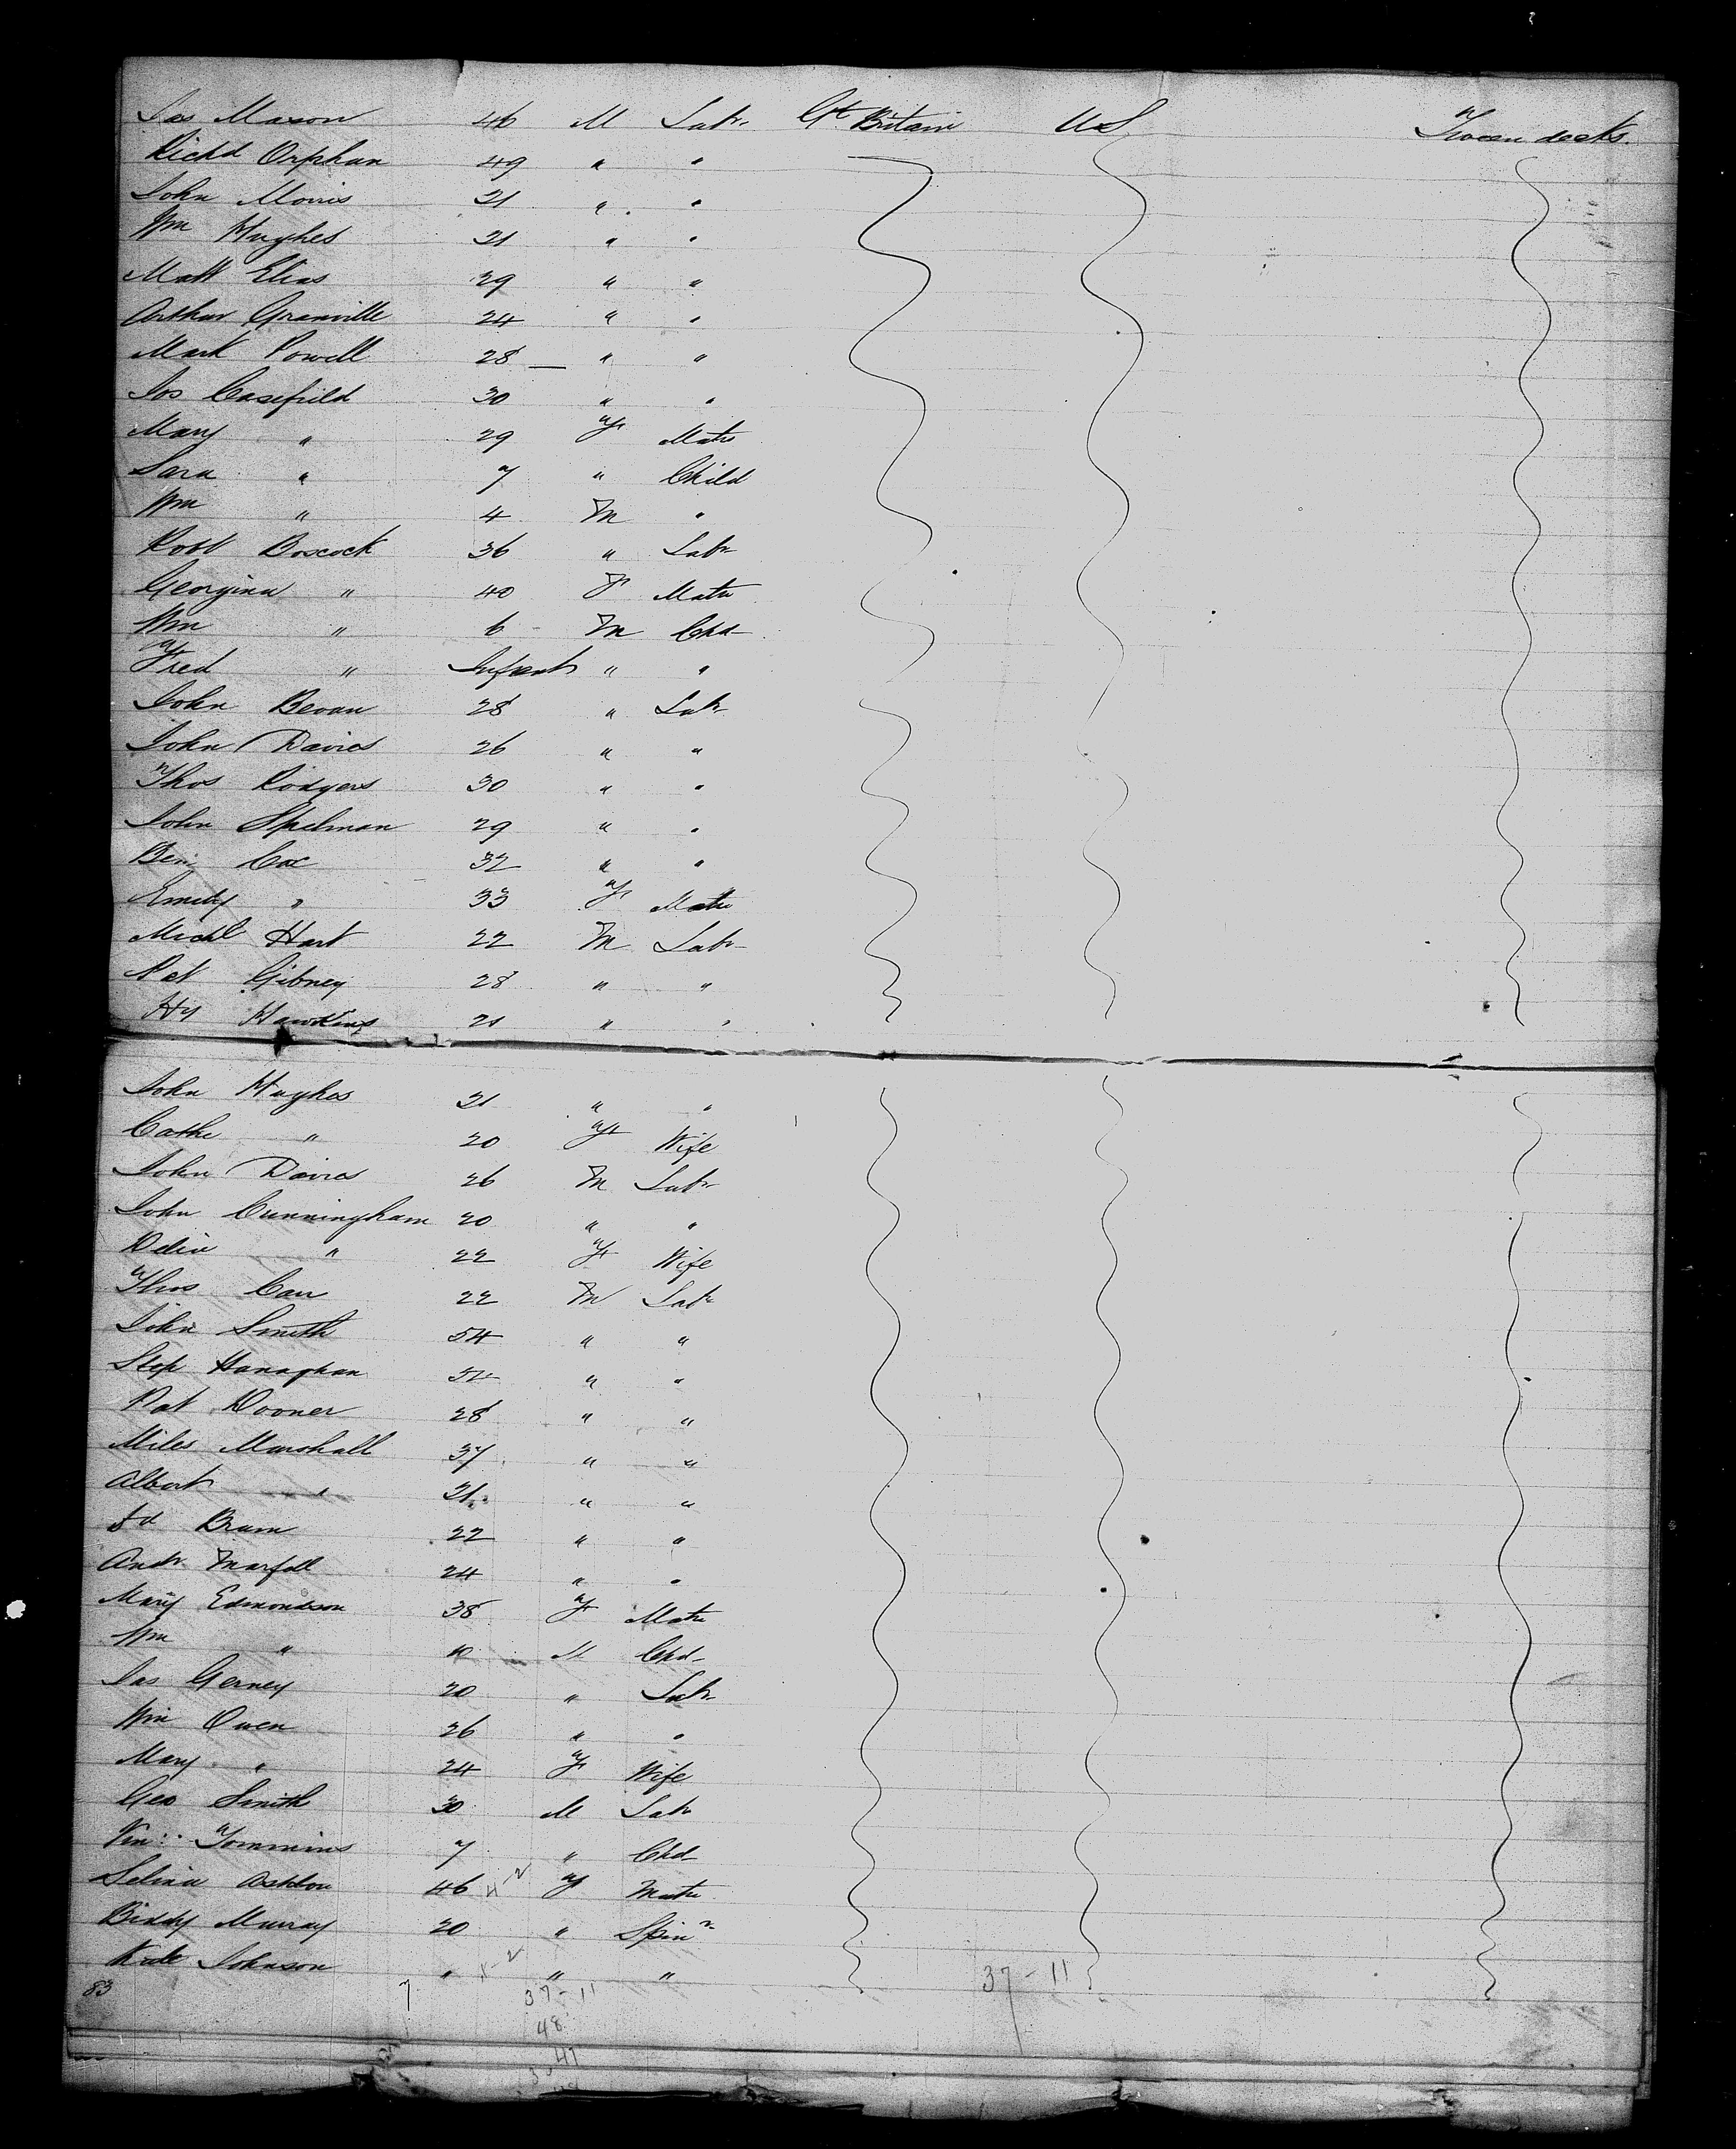 Jas Mason 46 M Labr Gt Britain U.S. Tween decks.
Richd Orphan 49 " "
John Morris 21 " "
Wm Hughes 21 " "
Matt Elias 29 " "
Arthur Granville 24 " "
Mark Powell 28 " "
Jos Casefield 30 " "
Mary " 29 F Matr
Sara " 7 " Child
Wm " 4 M "
Robt Boscock 36 " Labr
Georgina " 40 F Matr
Wm " 6 M Chd
Fred " Infant " "
John Bevan 28 " Labr
John Davies 26 " "
Thos Rodgers 30 " "
John Spelman 29 " "
Ben Cox 32 " "
Emily " 33 F Matr
Michl Hart 22 M Labr
Pat Gibney 28 " "
Hy Hawkins 21 " "
John Hughes 21 " "
Cathe " 20 F Wife
John Davies 26 M Labr
John Cunningham 20 " "
Delia " 22 F Wife
Thos Carr 22 M Labr
John Smith 54 " "
Step Hanaghan " "
Pat Dooner 28 " "
Miles Marshall 37 " "
Albert " 21 " "
Ed Bram 22 " "
Andr Marfell 24 " "
Mary Edmondson 38 F Matr
Wm " 10 M Chd
Jas Gerney 20 " Labr
Wm Owen 26 " "
Mary " 24 F Wife
Geo Smith 30 M Labr
Tommins 7 " Chd
Selina Ashton 46 F Matr
Biddy Murray 20 " Spinr
Kate Johnson " " "
83 7 37-11 37-11
48
47